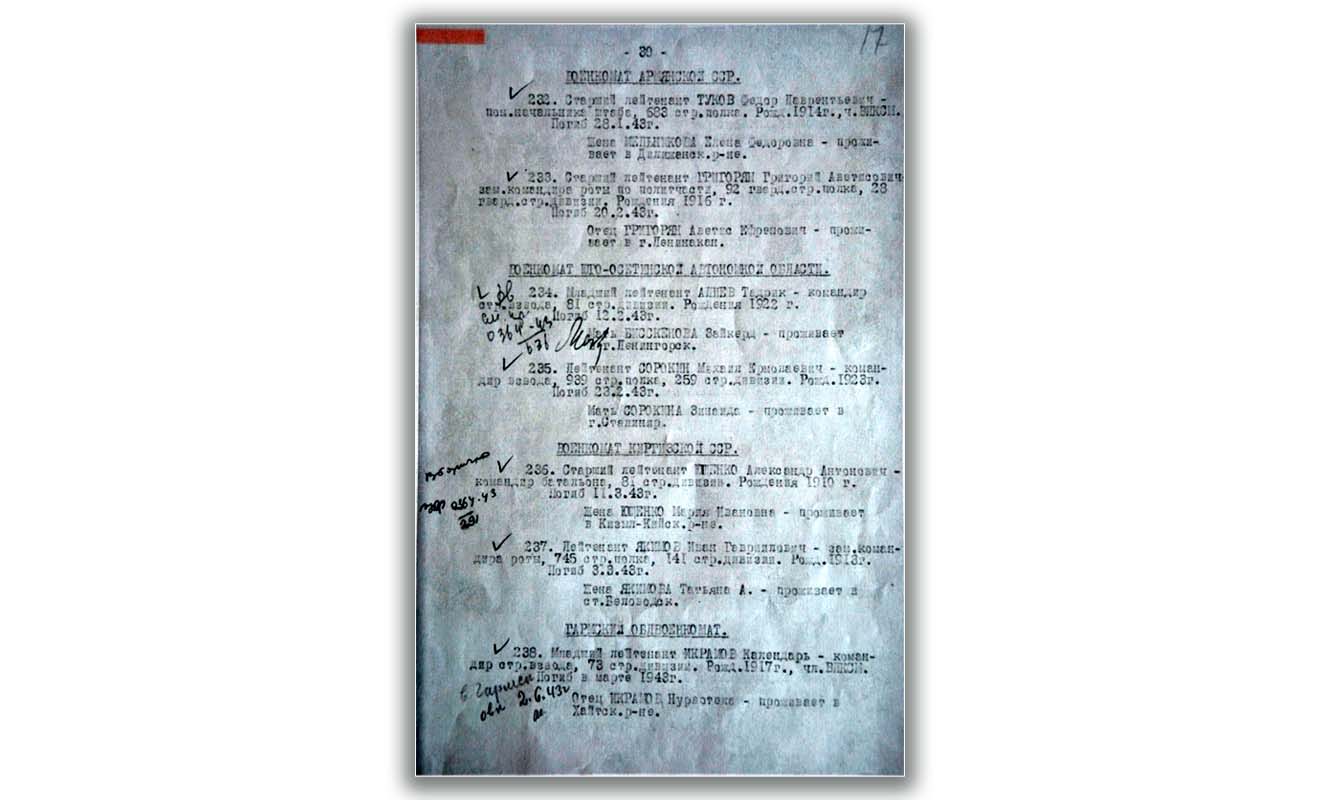 17
- 30 -
ВОЕНКОМАТ АРМЯНСКОЙ ССР.
232. Старший лейтенант ТУКОВ Федор Лаврентьевич -
пом.начальника штаба, 683 стр.полка. Рожд.1914г.,ч.ВЛКСМ.
Погиб 28.1.43г.
Жена МЕЛЬНИКОВА Елена Федоровна - прожи-
вает в Дилижанск.р-не.
233. Старший лейтенант ГРИГОРЯН Григорий Аветисович-
зам.командира роты по политчасти, 92 гвард.стр.полка, 28
гвард.стр.дивизии. Рождения 1916 г.
Погиб 20.2.43г.
Отец ГРИГОРЯН Аветис Ефремович - прожи-
вает в г.Ленинакан.
ВОЕНКОМАТ ЮГО-ОСЕТИНСКОЙ АВТОНОМНОЙ ОБЛАСТИ.
234. Младший лейтенант АЛИЕВ Тадрик - командир
стр.взвода, 81 стр.дивизии. Рождения 1922 г.
Погиб 12.2.43г.
0364-43
Мать БИССКЕНОВА Зайкерд - проживает
г.Ленингорск.
631
235. Лейтенант СОРОКИН Михаил Ермолаевич - коман-
дир взвода, 939 стр.полка, 259 стр.дивизии. Рожд.1923г.
Погиб 23.2.43г.
Мать СОРОКИНА Зинаида - проживает в
г.Сталинир.
ВОЕНКОМАТ КИРГИЗСКОЙ ССР.
236. Старший лейтенант ЮЩЕНКО Александр Антонович -
командир батальона, 81 стр.дивизии. Рождения 1910 г.
Погиб 11.3.43г.
0364-43
Жена ЮЩЕНКО Мария Ивановна - проживает
в Кизыл-Кийск.р-не.
237. Лейтенант ЯКИМОВ Иван Гавриилович - зам.коман-
дира роты, 745 стр.полка, 141 стр.дивизии. Рожд.1913г.
Погиб 3.3.43г.
Жена ЯКИМОВА Татьяна А. - проживает в
ст.Беловодск.
ГАРМСКИЙ ОБЛВОЕНКОМАТ.
238. Младший лейтенант ИКРАМОВ Календарь - коман-
дир стр.взвода, 73 стр.дивизии. Рожд.1917г., чл.ВЛКСМ.
Погиб в марте 1943г.
в Гармск
овк 2.6.43г
Отец ИКРАМОВ Нурастека - проживает в
Хайтск.р-не.